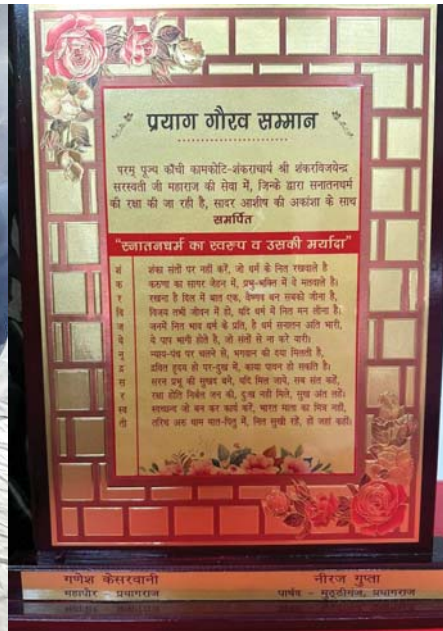 प्रयाग गौरव सम्मान
परम् पूज्य काँची कामकोटि-शंकराचार्य श्री शंकरविजयेन्द्र
सरस्वती जी महाराज की सेवा में, जिनके द्वारा सनातनधर्म
की रक्षा की जा रही है, सादर आशीष की अकांशा के साथ
समर्पित
"सनातनधर्म का स्वरुप व उसकी मर्यादा"
शं शंका संतों पर नहीं करें, जो धर्म के नित रखवाले है
क करुणा का सागर जेहन में, प्रभु-भक्ति में वे मतवाले है।
र रखना है दिल में बात एक, वैष्णव बन सबको जीना है,
वि विजय तभी जीवन में हो, यदि धर्म में नित मन लीना है।
ज जनमें नित भाव धर्म के प्रति, है धर्म सनातन अति भारी,
ये ये पाप भागी होते है, जो संतों से ना करे यारी।
न् न्याय-पंथ पर चलने से, भगवान की दया मिलती है,
द्र द्रवित हृदय हो पर-दुख में, काया पावन हो सकति है।
स सरन प्रभु की सुखद बने, यदि मिल जाये, सब संत कहें,
र रक्षा होति निर्बल जन की, दुःख नही मिले, सुख अंत लहें।
स्व स्वच्छन्द जो बन कर कार्य करें, भारत माता का मित्र नहीं,
ती तरिथ अरु धाम मात-पितु में, नित सुखी रहें, हो जहां कहीं।
गणेश केसरवानी नीरज गुप्ता
महापौर - प्रयागराज पार्षद - मुट्ठीगंज, प्रयागराज